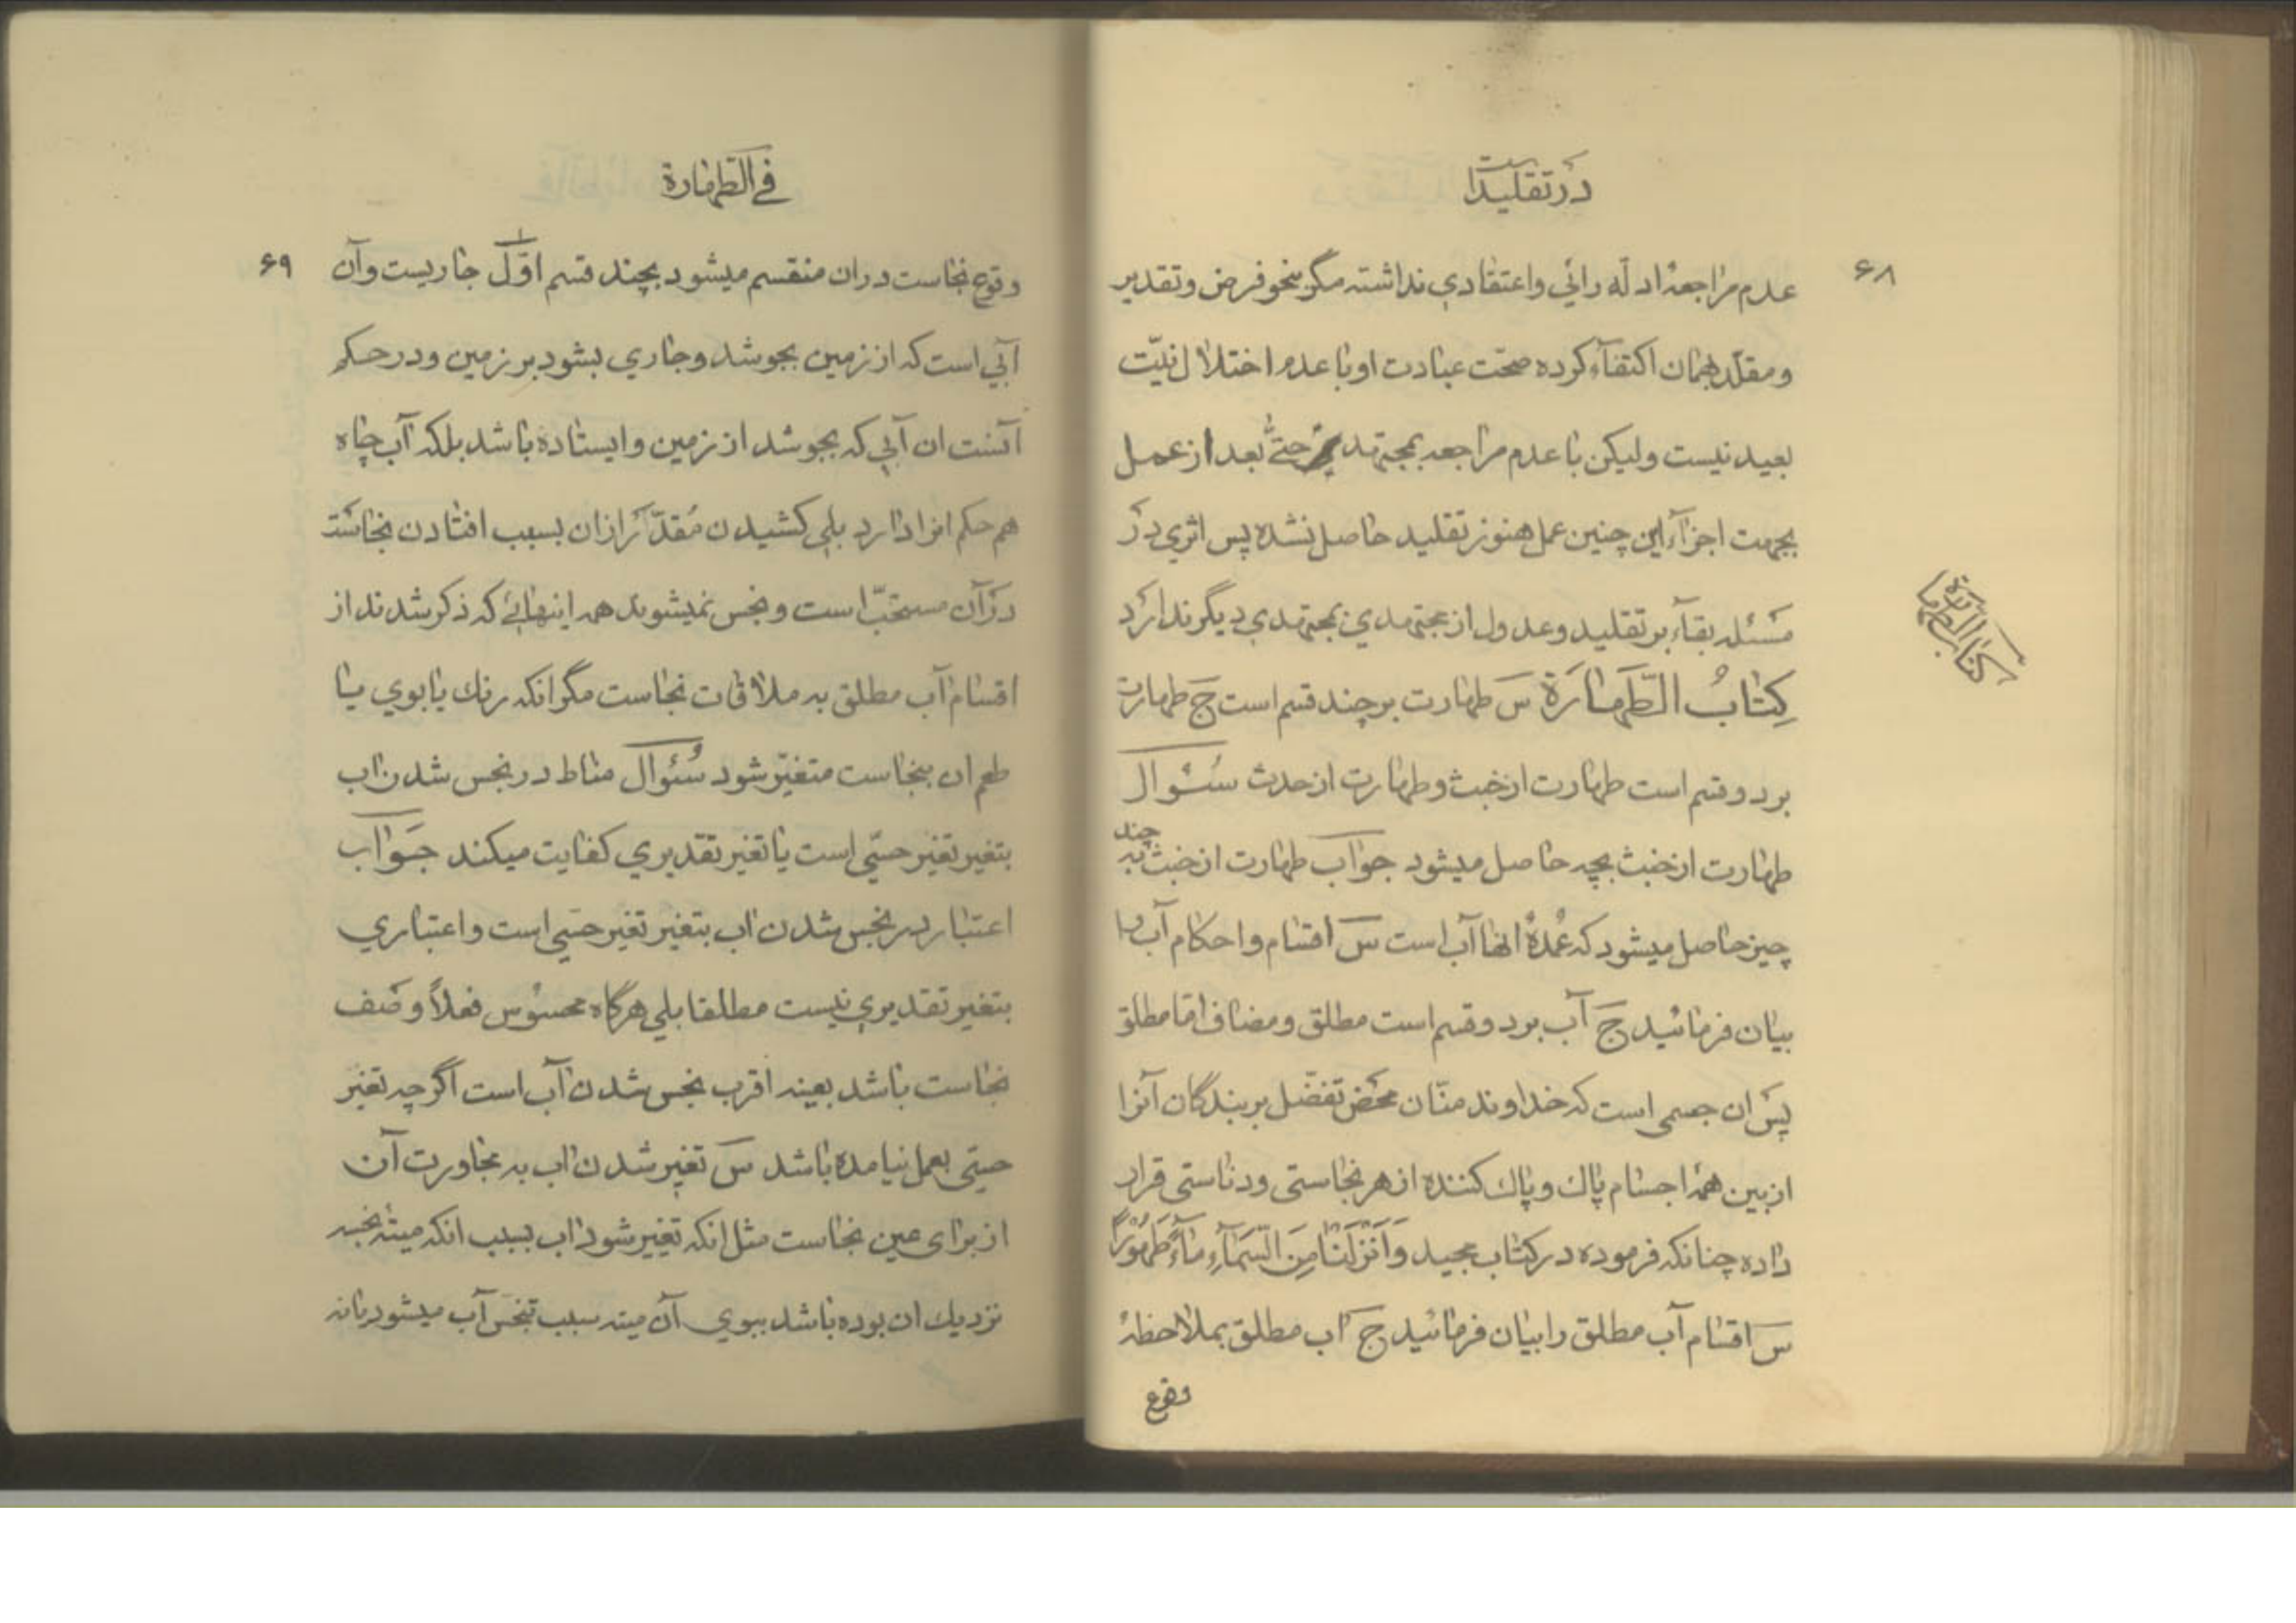 در تقلید است
۶۸
عدم مراجعهٔ ادلّه رائي واعتقادي نداشته مگر بنحو فرض وتقدير
ومقلّد بهمان اكتفاء كرده صحّت عبادت او با عدم اختلال نيّت
بعيد نيست وليكن با عدم مراجعه بمجتهد حتّی بعد از عمل
بجهت اجزاء اين چنين عمل هنوز تقليد حاصل نشده پس اثري در
مسئله بقاء بر تقليد وعدول از مجتهدي بمجتهدي ديگر ندارد
كتاب الطهارة
كِتابُ الطَّهارَة س طهارت بر چند قسم است ج طهارت
بر دو قسم است طهارت از خبث وطهارت از حدث سُئوال
طهارت از خبث بچه حاصل ميشود جواب طهارت از خبث به چند
چيز حاصل ميشود كه عُمدهٔ انها آب است س اقسام واحكام آب را
بيان فرمائيد ج آب بر دو قسم است مطلق ومضاف امّا مطلق
پس ان جسمی است كه خداوند منّان محض تفضّل بر بندگان آنرا
از بين همهٔ اجسام پاك وپاك كننده از هر نجاستی ودناستی قرار
داده چنانكه فرموده در كتاب مجيد وَاَنْزَلْنا مِنَ السَّمآءِ مآءً طَهُورًا
س اقسام آب مطلق را بيان فرمائيد ج آب مطلق بملاحظهٔ
وقوع
في الطهارة
۶۹
وقوع نجاست در ان منقسم ميشود بچند قسم اوّل جاريست وآن
آبي است كه از زمين بجوشد وجاري بشود بر زمين ودر حكم
آنست ان آبي كه بجوشد از زمين وايستاده باشد بلكه آب چاه
هم حكم انرا دارد بلي كشيدن مُقدّر از ان بسبب افتادن نجاست
در آن مستحبّ است ونجس نميشوند همه اينهائي كه ذكر شدند از
اقسام آب مطلق به ملاقات نجاست مگر انكه رنك يا بوي يا
طعم ان بنجاست متغيّر شود سُئوال مناط در نجس شدن اب
بتغير تغير حسّي است يا تغير تقديري كفايت ميكند جَواب
اعتبار در نجس شدن اب بتغير تغير حسّي است واعتباري
بتغير تقديري نيست مطلقا بلي هرگاه محسوس فعلاً وصف
نجاست باشد بعينه اقرب نجس شدن آب است اگرچه تغير
حسّي بعمل نيامده باشد س تغير شدن اب به مجاورت آن
از براى عين نجاست مثل انكه تغيير شود اب بسبب انكه ميتهٔ نجسه
نزديك ان بوده باشد ببوي آن ميته سبب تنجّس آب ميشود يا نه